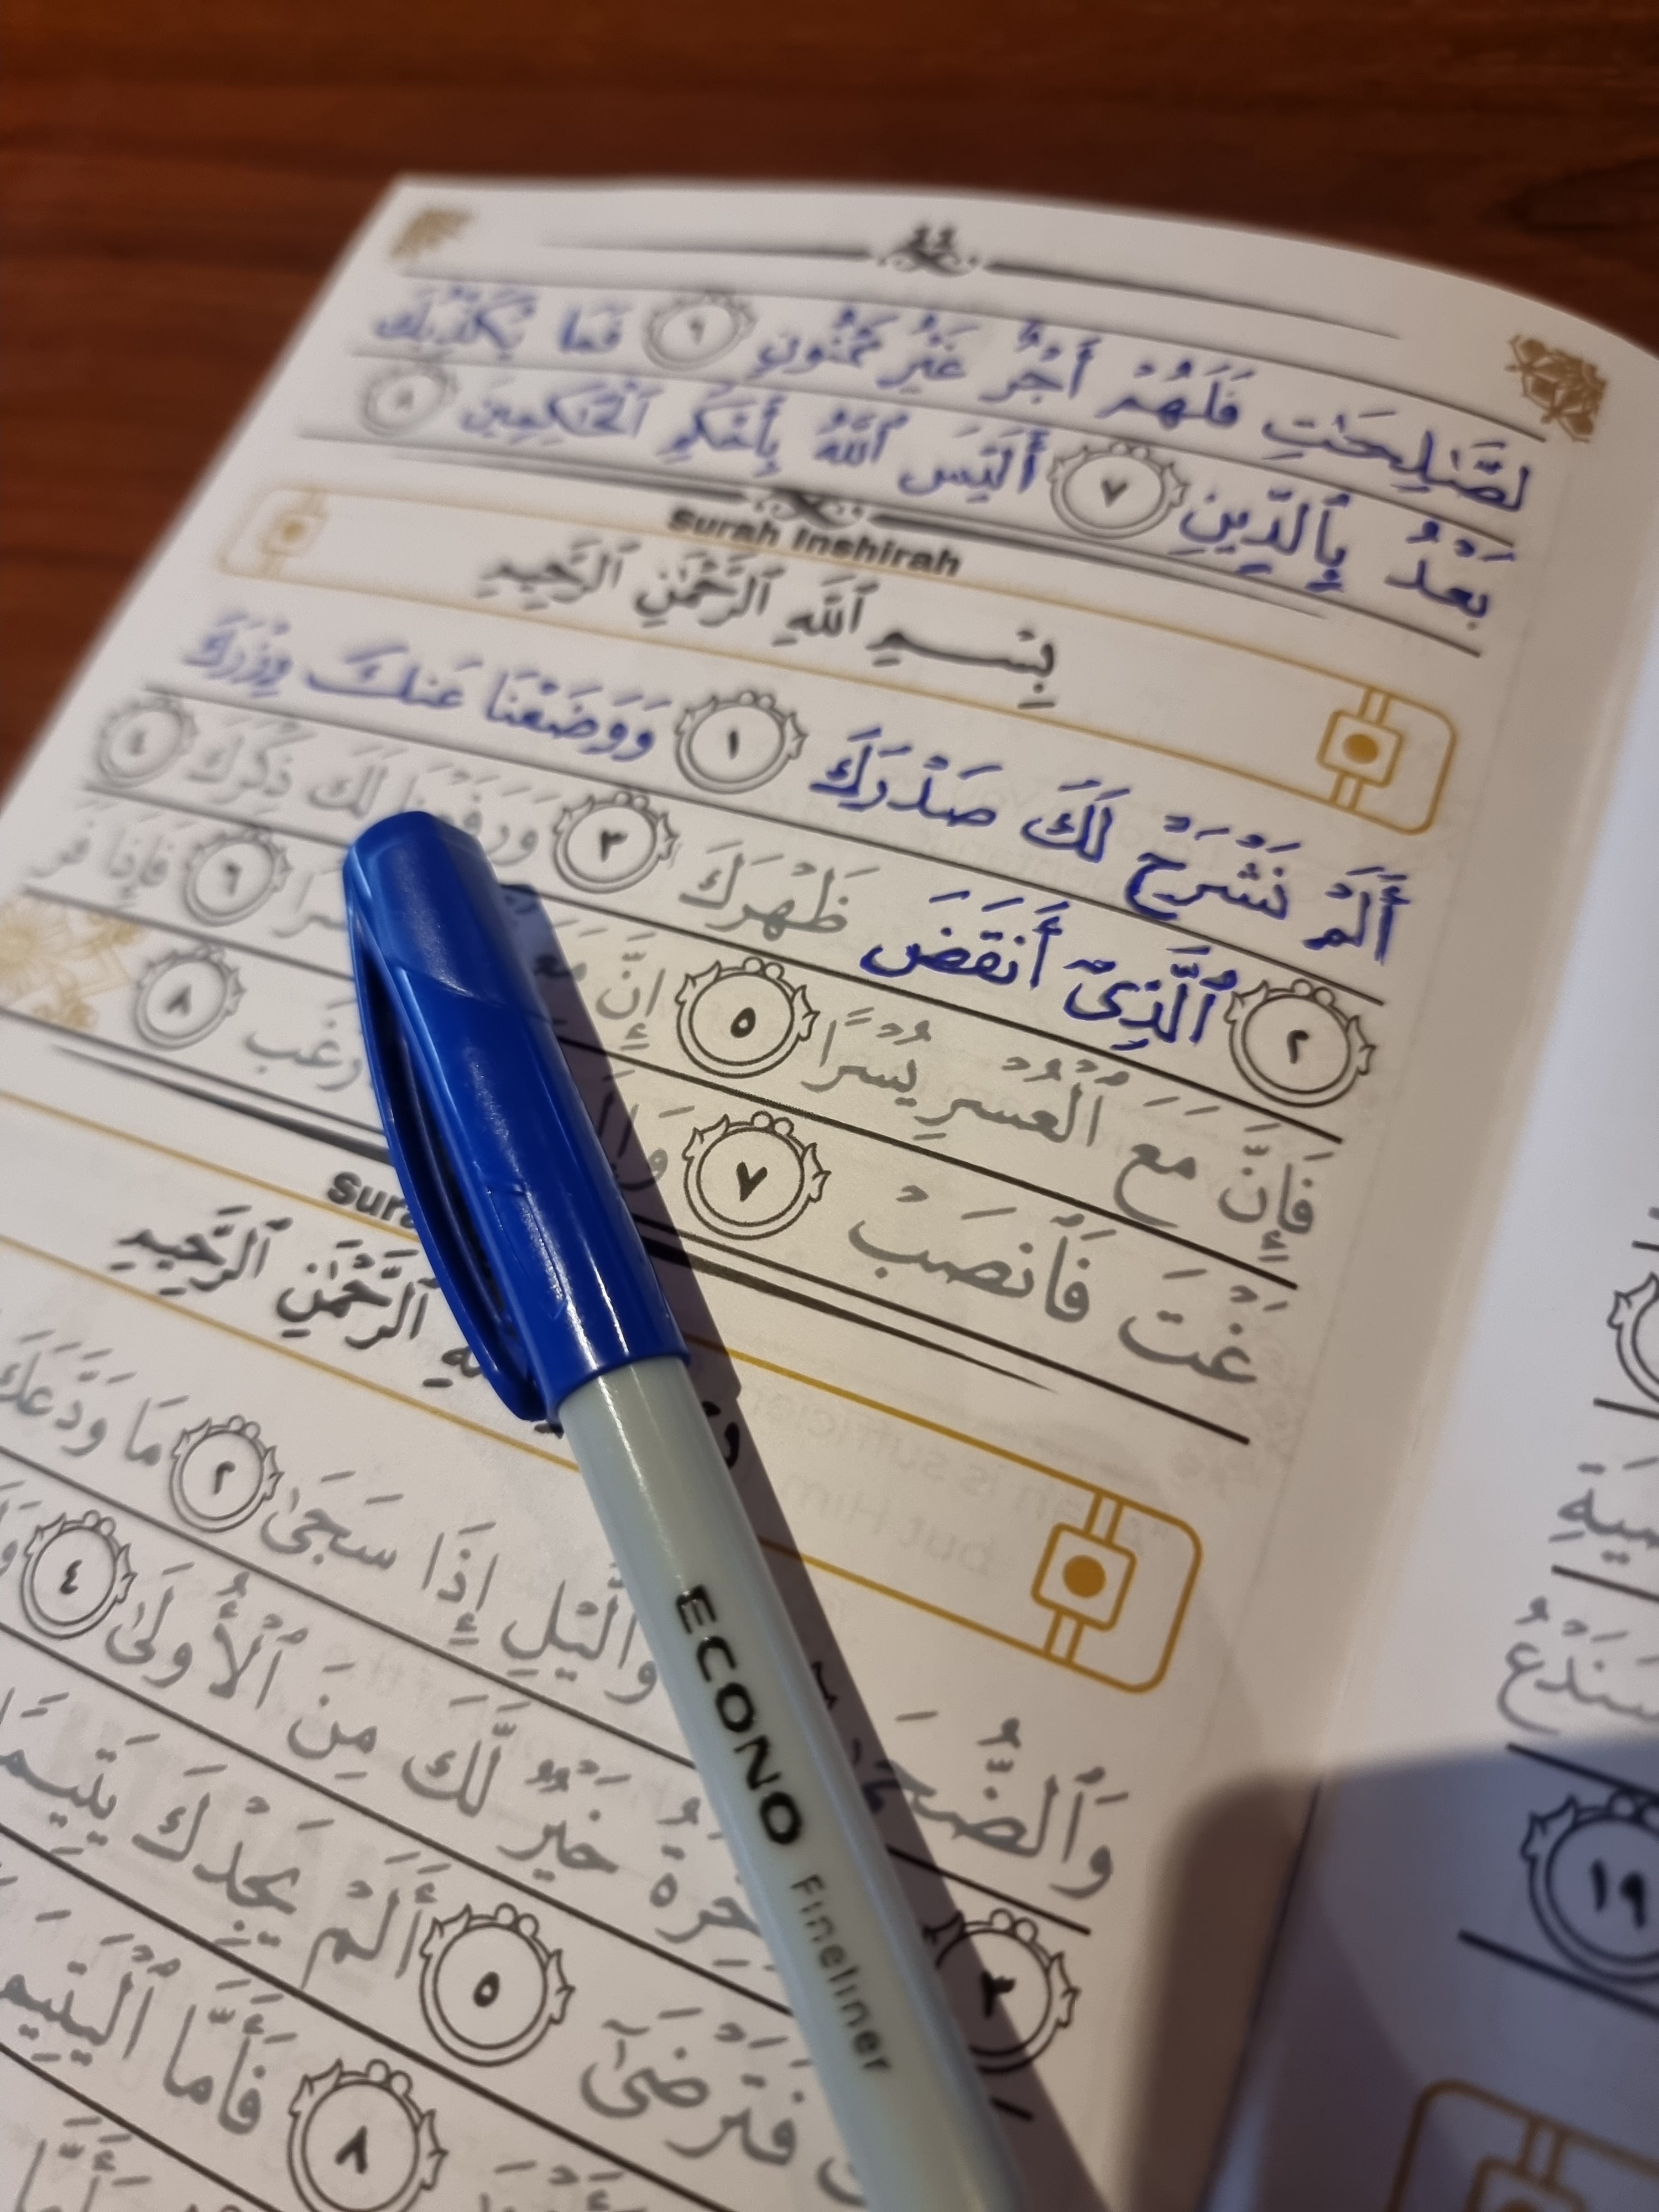 ٤٤
لصَّٰلِحَٰتِ فَلَهُمْ أَجْرٌ غَيْرُ مَمْنُونٍ ٦ فَمَا يُكَذِّبُكَ
بَعْدُ بِٱلدِّينِ ٧ أَلَيْسَ ٱللَّهُ بِأَحْكَمِ ٱلْحَٰكِمِينَ ٨
Surah Inshirah
بِسْمِ ٱللَّهِ ٱلرَّحْمَٰنِ ٱلرَّحِيمِ
أَلَمْ نَشْرَحْ لَكَ صَدْرَكَ ١ وَوَضَعْنَا عَنكَ وِزْرَكَ
٢ ٱلَّذِىٓ أَنقَضَ ظَهْرَكَ ٣ وَرَفَعْنَا لَكَ ذِكْرَكَ ٤
فَإِنَّ مَعَ ٱلْعُسْرِ يُسْرًا ٥ إِنَّ مَعَ سْرًا ٦ فَإِذَا فَرَ
غْتَ فَٱنصَبْ ٧ وَإِلَ رْغَب ٨
Sura
ٱلرَّحْمَٰنِ ٱلرَّحِيمِ
وَٱلضُّحَ وَٱلَّيْلِ إِذَا سَجَىٰ ٢ مَا وَدَّعَكَ
٣ خِرَةُ خَيْرٌ لَّكَ مِنَ ٱلْأُولَىٰ ٤
فَتَرْضَىٰٓ ٥ أَلَمْ يَجِدْكَ يَتِيمً
٨ فَأَمَّا ٱلْيَتِيمَ
ECONO Fineliner
سَنَدْعُ
١٩